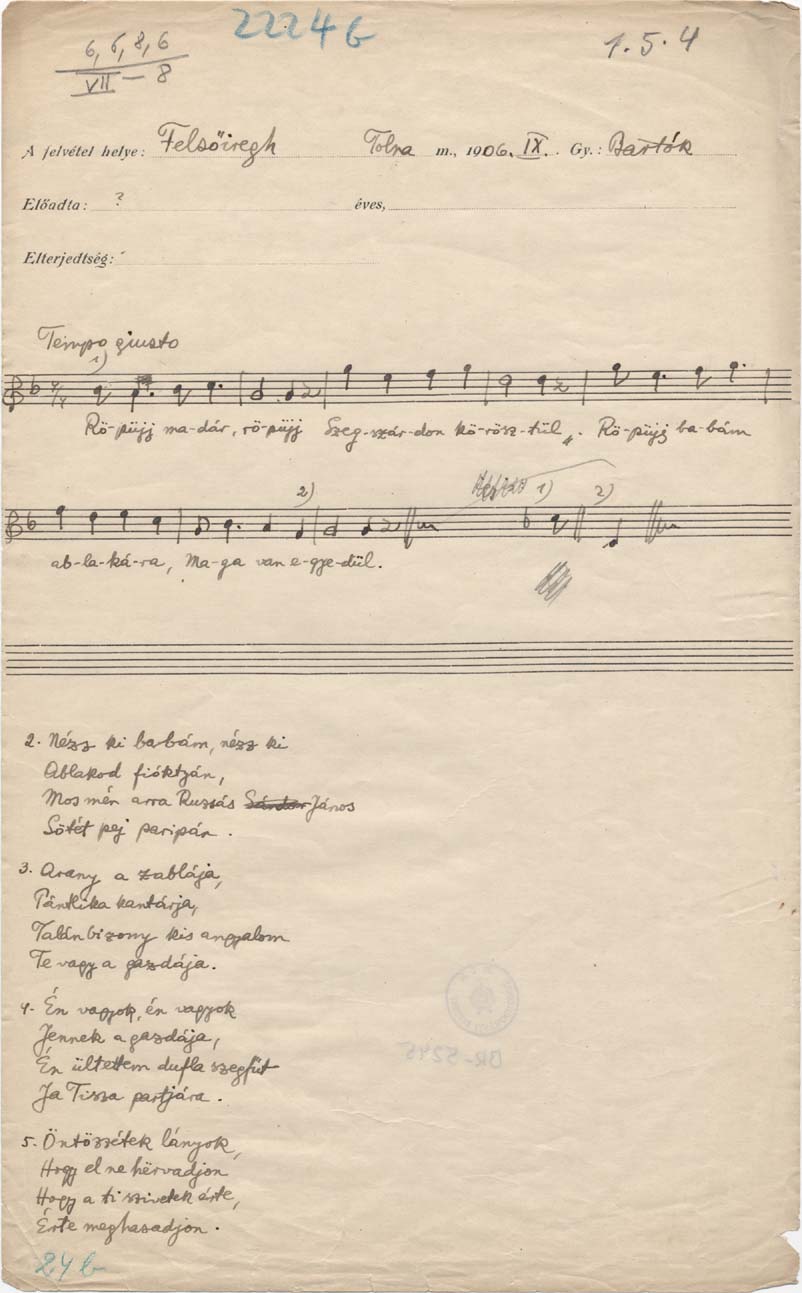 2224b
6, 6, 8, 6
VII — 8
1.5.4
A felvétel helye: Felsőiregh Tolna m., 1906. IX. Gy.: Bartók
Előadta: ? éves,
Elterjedtség:
Tempo giusto
1)
Rö-püjj ma-dár, rö-püjj Szeg-szár-don kö-rösz-tül,, . Rö-püjj ba-bám
2) 1) 2)
ab-la-ká-ra, Ma-ga van e-gye-dül.
2. Nézz ki babám, nézz ki
Ablakod fióktyán,
Mos mén arra Ruzsás Sándor János
Sötét pej paripán.
3. Arany a zablája,
Pántlika kantárja,
Talán bizony kis angyalom
Te vagy a gazdája.
4. Én vagyok, én vagyok
Jennek a gazdája,
Én ültettem dufla szegfüt
Ja Tisza partjára.
5. Öntözzétek lányok,
Hogy el ne hërvadjon
Hogy a ti szivetek érte,
Érte meghasadjon.
BR-5245
24b